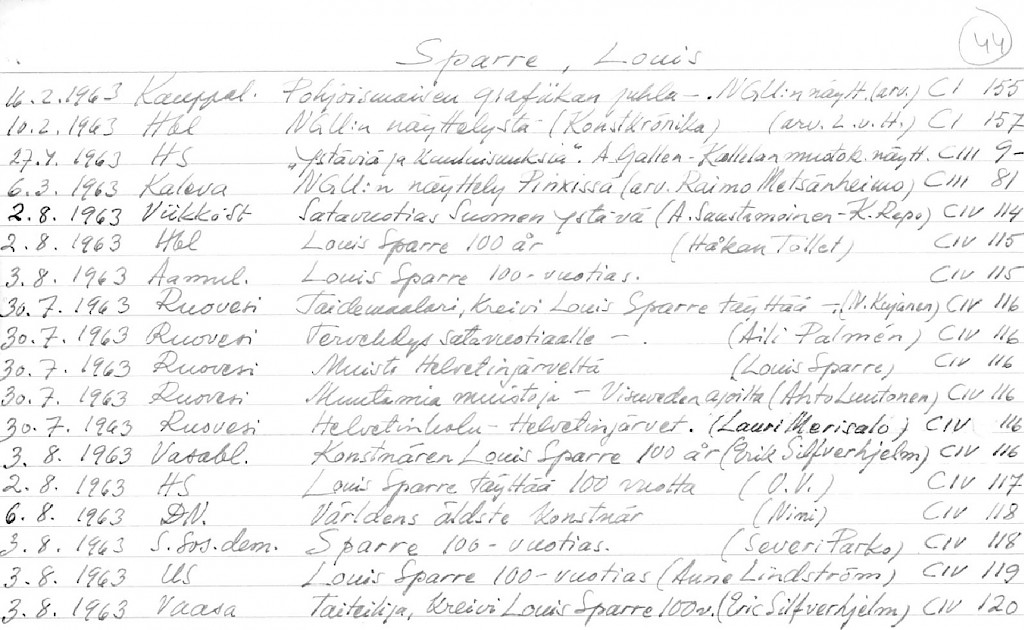 44
Sparre, Louis
16.2.1963 Kauppal. Pohjoismaisen grafiikan juhla - . NGU:n näytt. (arv.) CI 155
10.2.1963 Hbl NGU:n näyttelystä (Konstkrönika) (arv. L.v.H.) CI 157
27.4.1963 HS "Ystäviä ja kuuluisuuksia". A. Gallen-Kallelan muotok. näytt. CIII 9-
6.3.1963 Kaleva NGU:n näyttely Pinxissä (arv. Raimo Metsänheimo) CIII 81
2.8.1963 Viikkosst Satavuotias Suomen ystävä (A. Saastamoinen-K. Repo) CIV 114
2.8.1963 Hbl Louis Sparre 100 år (Håkan Tollet) CIV 115
3.8.1963 Aamul. Louis Sparre 100-vuotias. CIV 115
30.7.1963 Ruovesi Taidemaalari, kreivi Louis Sparre täyttää -. (N. Kujanen) CIV 116
30.7.1963 Ruovesi Tervehdys satavuotiaalle - . (Aili Palmén) CIV 116
30.7.1963 Ruovesi Muisto Helvetinjärveltä (Louis Sparre) CIV 116
30.7.1963 Ruovesi Muutamia muistoja - Visuveden ajoilta (Ahto Luutonen) CIV 116
30.7.1963 Ruovesi Helvetinkolu - Helvetinjärvet. (Lauri Merisalo) CIV 116
3.8.1963 Vasabl. Konstnären Louis Sparre 100 år (Erik Silfverhjelm) CIV 116
2.8.1963 HS Louis Sparre täyttää 100 vuotta (O.V.) CIV 117
6.8.1963 D.N. Världens äldste konstnär (Nimi) CIV 118
3.8.1963 S. Sos.dem. Sparre 100-vuotias. (Severi Parko) CIV 118
3.8.1963 US Louis Sparre 100-vuotias (Aune Lindström) CIV 119
3.8.1963 Vaasa Taiteilija, kreivi Louis Sparre 100 v. (Eric Silfverhjelm) CIV 120